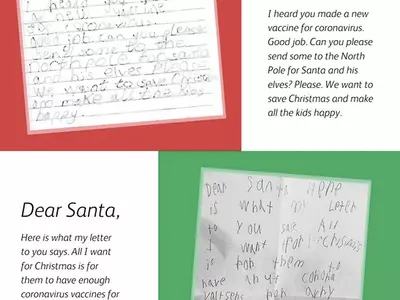 I heard you made a new
vaccine for coronavirus.
Good job. Can you please
send some to the North
Pole for Santa and his
elves? Please. We want to
save Christmas and make
all the kids happy.
I heard you
new
Good job can you please
send some to the
Northpole for santa
and his elves please
We want to save
and make all the kids
happy.
Dear Santa,
Here is what my letter
to you says. All I want
for Christmas is for
them to have enough
coronavirus vaccines for
Dear Santa Here
is what my Leter
to you
I want for
is for them to
have